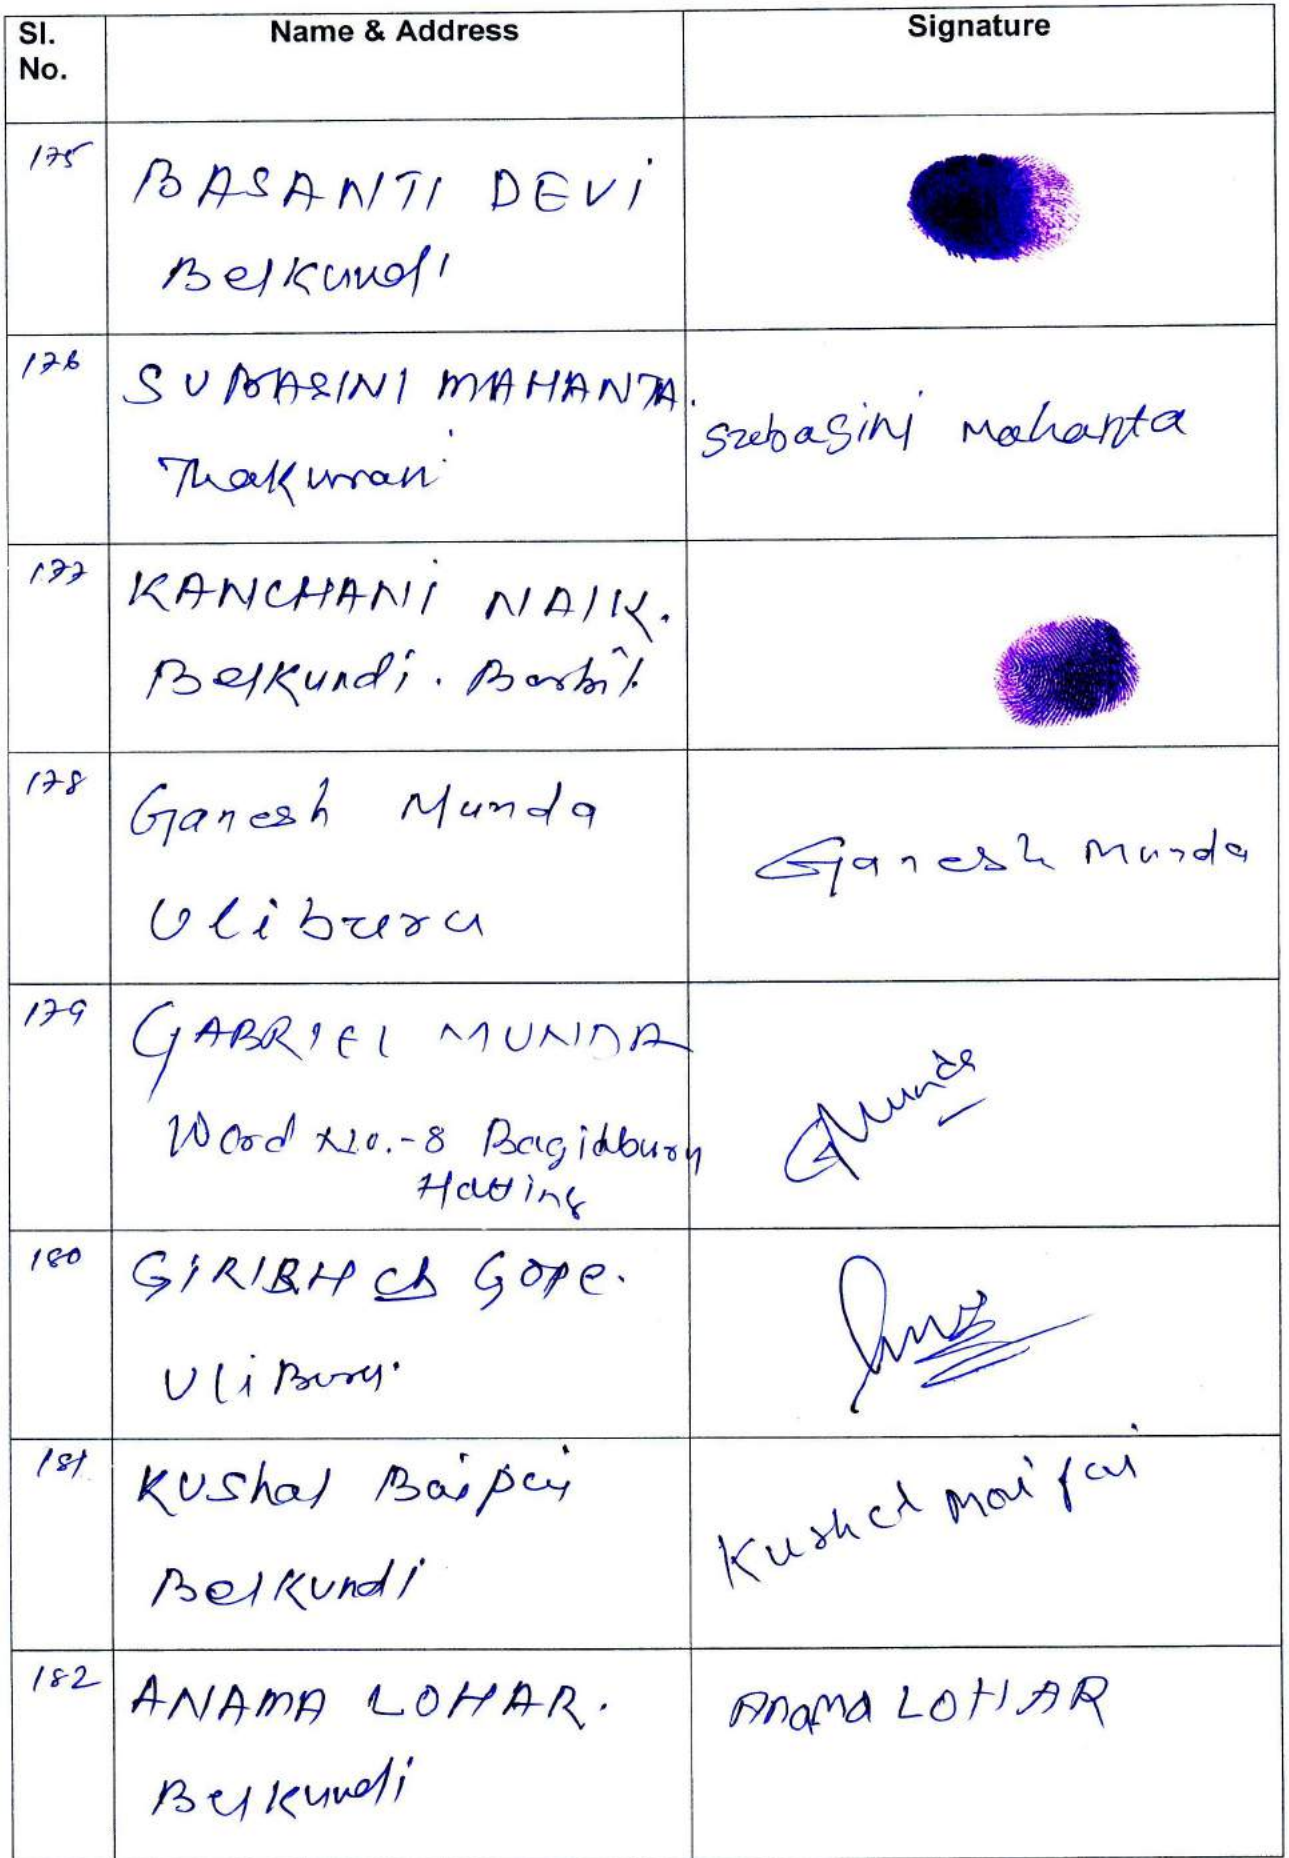 Sl. No.
Name & Address
Signature
175
BASANTI DEVI
Belkundi
176
SUBASINI MAHANTA.
Thakurani
Subasini Mahanta
177
KANCHANI NAIK.
Belkundi. Barbil.
178
Ganesh Munda
Uliburu
Ganesh Munda
179
GABRIEL MUNDA
Word No.-8
Hatting
GMunda
180
GIRIBH ch Gope.
UliBuru.
181
Kushal Baipai
Belkundi
Kushal
182
ANAMA LOHAR.
Belkundi
Anama LOHAR